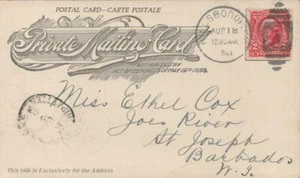 POSTAL CARD—CARTE POSTALE
Private Mailing Card
AUTHORIZED BY
ACT OF CONGRESS OF MAY 19TH 1898.
Miss Ethel Cox
Joes River
St Joseph
Barbados
W. I.
This side is Exclusively for the Address